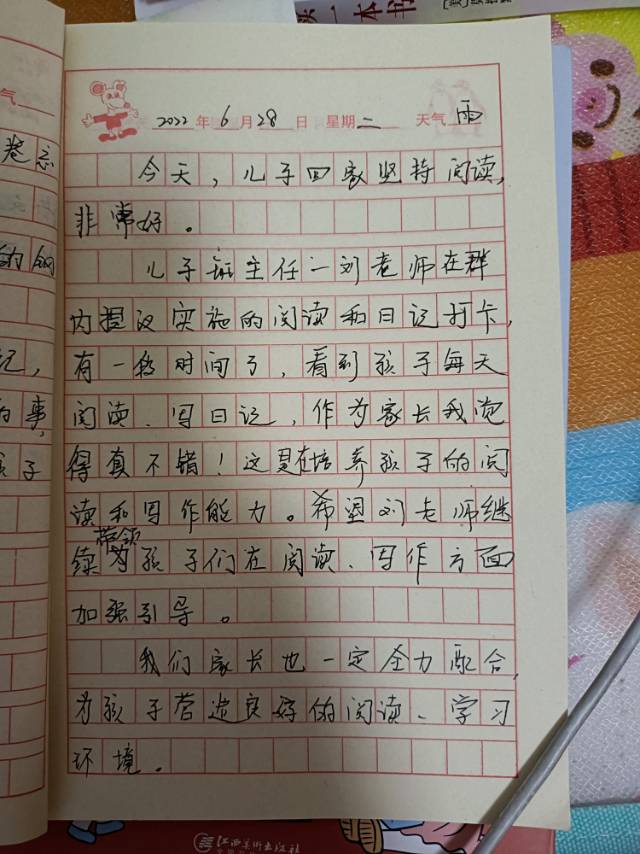 读一本书
气
2022年6月28日 星期二 天气雨
今天，儿子回家坚持阅读，
非常好。
儿子班主任—刘老师在群
内提议实施的阅读和日记打卡，
有一段时间了，看到孩子每天
阅读、写日记，作为家长我觉
得真不错！这是在培养孩子的阅
读和写作能力。希望刘老师继
带领
续为孩子们在阅读、写作方面
加强引导。
我们家长也一定全力配合，
为孩子营造良好的阅读、学习
环境。
江西美术出版社